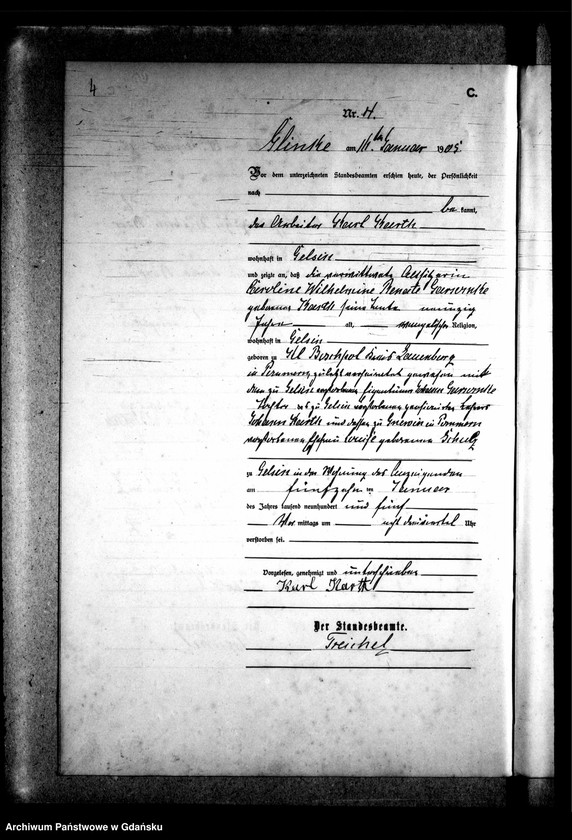 4
C.
Nr. 4.
Glinke am 16ten Januar 1905
Vor dem unterzeichneten Standesbeamten erschien heute, der Persönlichkeit
nach
bekannt,
der Arbeiter Karl Karth
wohnhaft in Gelsin
und zeigte an, daß die verwittwete Altsitzerin
Karoline Wilhelmine Renate
geborene Karth seine Tante neunzig
Jahre alt, evangelischer Religion,
wohnhaft in Gelsin
geboren zu Kl Boschpol Kreis Lauenburg
in Pommern zuletzt verheiratet gewesen mit
dem zu Gelsin verstorbenen Eigentümer Johann
Tochter des zu Gelsin verstorbenen
Johann Karth und dessen zu Gnewin in Pommern
verstorbenen Ehefrau Louise geborenen Schulz
zu Gelsin in der Wohnung des Anzeigenden
am fünfzehnten Januar
des Jahres tausend neunhundert und fünf
Vor mittags um acht dreiviertel Uhr
verstorben sei.
Vorgelesen, genehmigt und unterschrieben
Karl Karth
Der Standesbeamte.
Treichel
Archiwum Państwowe w Gdańsku